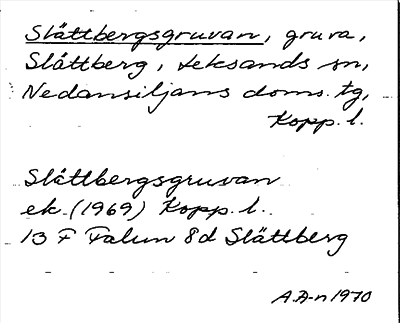 Slättbergsgruvan, gruva,
Slättberg, Leksands sn,
Nedansiljans doms. tg,
Kopp. l.
Slättbergsgruvan
ek. (1969) Kopp. l.
13 F Falun 8d Slättberg
A.A-n 1970